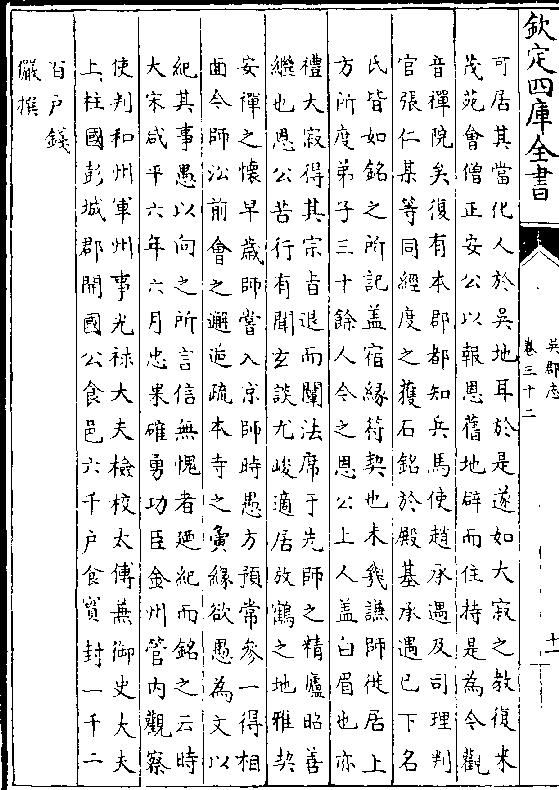 欽定四庫全書
吳郡志
卷三十二
十一
可居其當化人於吳地耳於是遂如大寂之教復來
茂苑會僧正安公以報恩舊地辟而住持是為今觀
音禪院矣復有本郡都知兵馬使趙承遇及司理判
官張仁某等同經度之獲石銘於殿基承遇已下名
氏皆如銘之所記盖宿緣符契也未幾讌師徙居上
方所度弟子三十餘人今之恩公上人盖白眉也亦
禮大寂得其宗㫖退而闡法席于先師之精廬昭善
繼也恩公苦行有聞玄談尤峻適居放鶴之地雅契
安禪之懷早歲師嘗入京師時愚方預常參一得相
面今師訟前會之邂逅疏本寺之夤緣欲愚為文以
紀其事愚以向之所言信無愧者廼紀而銘之云時
大宋咸平六年六月忠果確勇功臣金州管内觀察
使判和州軍州事光祿大夫檢校太傅兼御史大夫
上柱國彭城郡開國公食邑六千户食實封一千二
百户錢
儼撰